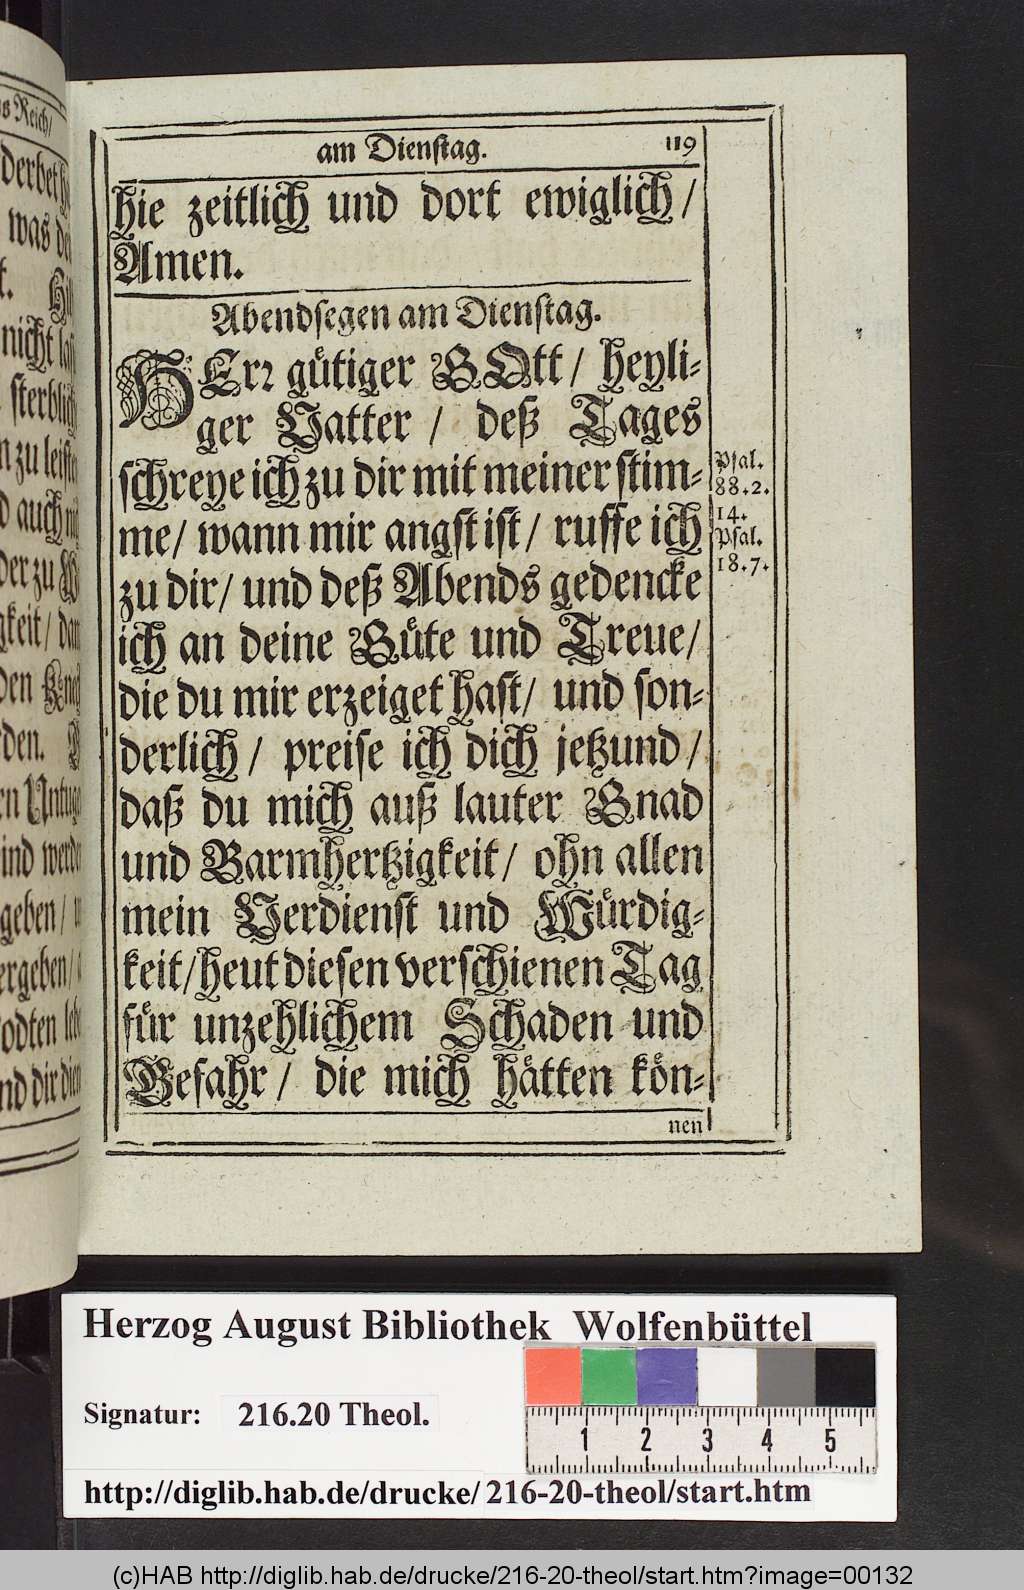 s Reich/
derbet
was
nicht
sterblich
n zu leisten
d auch
der zu
gkeit/
den
den.
rn Untuge
ind werde
geben/
ergeben/
odten
nd dir
am Dienstag. 119
hie zeitlich und dort ewiglich/
Amen.
Abendsegen am Dienstag.
HErr gütiger GOtt/ heyli-
ger Vatter/ deß Tages
schreye ich zu dir mit meiner stim-
me/ wann mir angst ist/ ruffe ich
zu dir/ und deß Abends gedencke
ich an deine Güte und Treue/
die du mir erzeiget hast/ und son-
derlich/ preise ich dich jetzund/
daß du mich auß lauter Gnad
und Barmhertzigkeit/ ohn allen
mein Verdienst und Würdig-
keit/ heut diesen verschienen Tag
für unzehlichem Schaden und
Gefahr/ die mich hätten kön-
nen
Psal.
88.2.
14.
Psal.
18.7.
Herzog August Bibliothek Wolfenbüttel
Signatur: 216.20 Theol.
1 2 3 4 5
http://diglib.hab.de/drucke/216-20-theol/start.htm
(c)HAB http://diglib.hab.de/drucke/216-20-theol/start.htm?image=00132